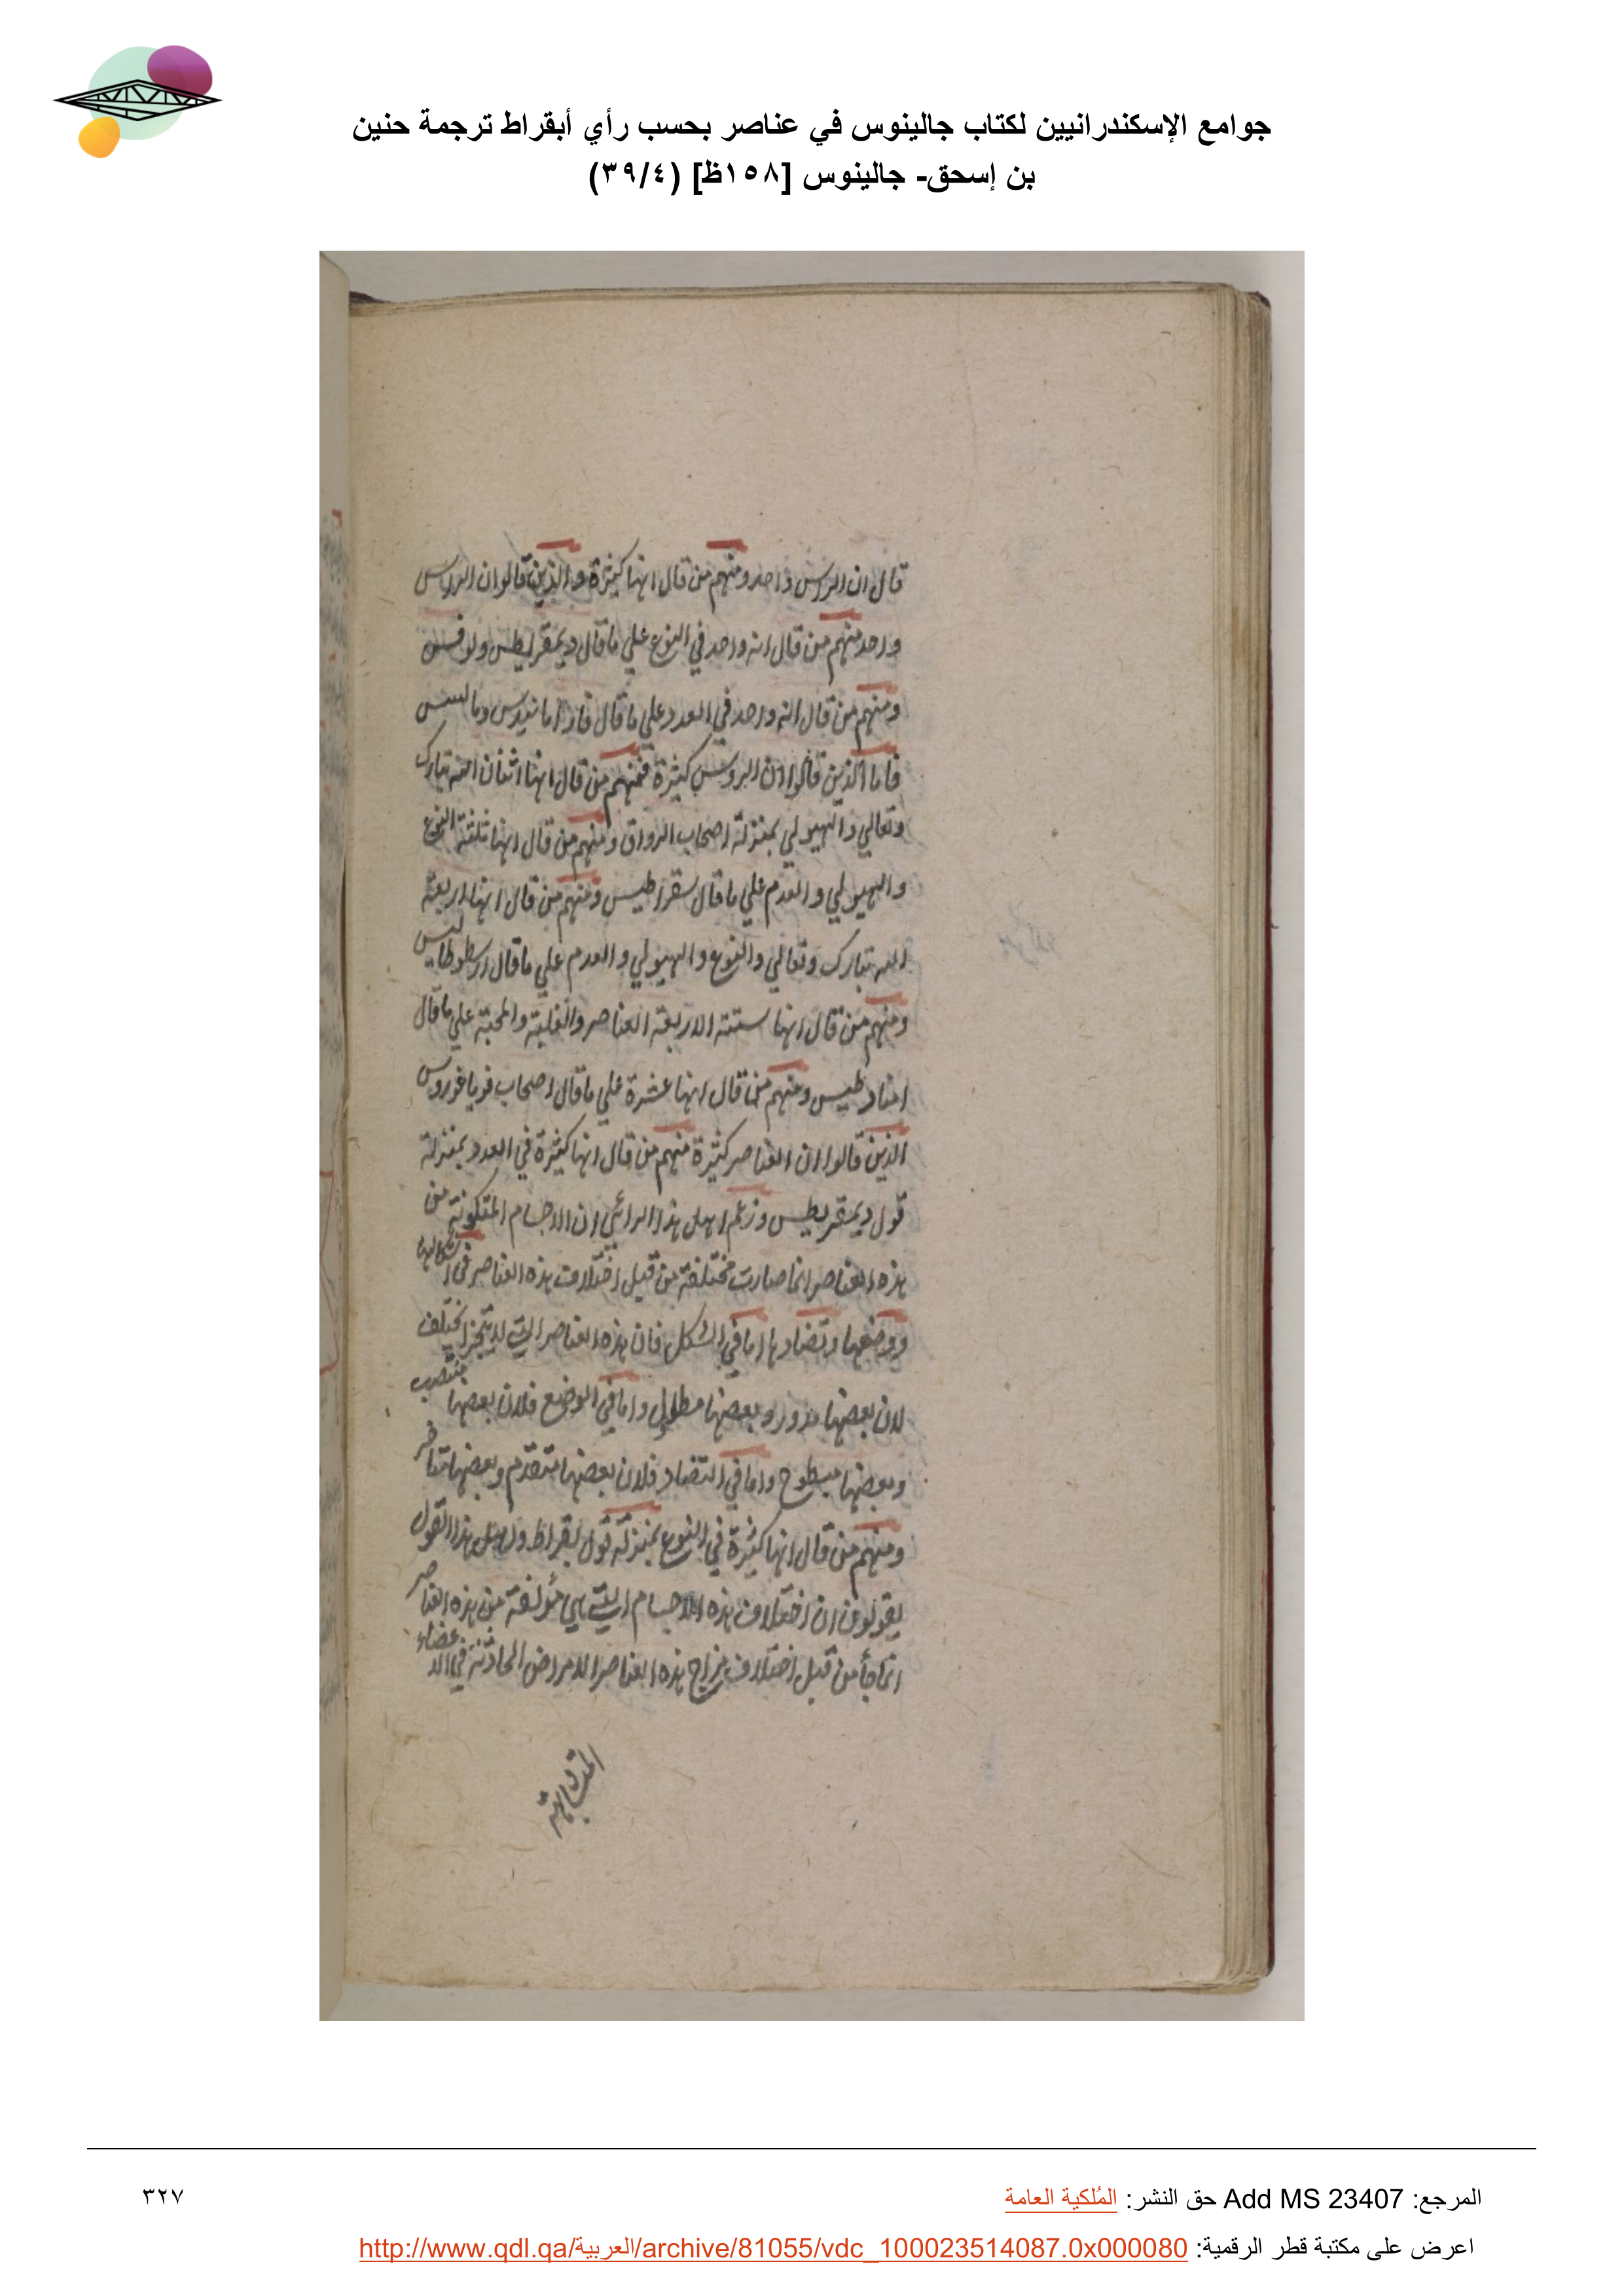 جوامع الإسكندرانيين لكتاب جالينوس في عناصر بحسب رأي أبقراط ترجمة حنين
بن إسحق- جالينوس [١٥٨ظ] (٣٩/٤)
قال ان الروس واحد ومنهم من قال انها كثيرة والذين قالوا ان الروس
واحد منهم من قال انه واحد في النوع علي ما قال ديمقريطس
ومنهم من قال انه واحد في العدد علي ما قال
فاما الذين قالوا ان الروس كثيرة فمنهم من قال انها اثنان الله تبارك
وتعالي والهيولي بمنزلة اصحاب الرواق ومنهم من قال انها ثلثة النوع
والهيولي والعدم علي ما قال سقراطيس ومنهم من قال انها اربعة
الله تبارك وتعالي والنوع والهيولي والعدم علي ما قال ارسطوطاليس
ومنهم من قال انها ستة الاربعة العناصر والغلبة والمحبة علي ما قال
ومنهم من قال انها عشرة علي ما قال اصحاب فوياغوروس
الذين قالوا ان العناصر كثيرة منهم من قال انها كثيرة في العدد بمنزلة
قول ديمقريطس وزعم اهل هذا الرائي ان الاجسام المتكونة من
هذه العناصر انما صارت مختلفة من قبل اختلاف هذه العناصر في اشكالها
ووضعها وتضادها اما في الشكل فان هذه العناصر التي لا يتجزا يختلف
لان بعضها مدور وبعضها مطاول واما في الوضع فلان بعضها منتصب
وبعضها مبطوح واما في التضاد فلان بعضها متقدم وبعضها متاخر
ومنهم من قال انها كثيرة في النوع بمنزلة قول بقراط واهل هذا القول
يقولون ان اختلاف هذه الاجسام التي هي مؤلفة من هذه العناصر
انما جأ من قبل اختلاف مزاج هذه العناصر الامراض الحادثة في الاعضاء
المتشابهة
المرجع: Add MS 23407 حق النشر: المُلكية العامة
٣٢٧
اعرض على مكتبة قطر الرقمية: http://www.qdl.qa/العربية/archive/81055/vdc_100023514087.0x000080